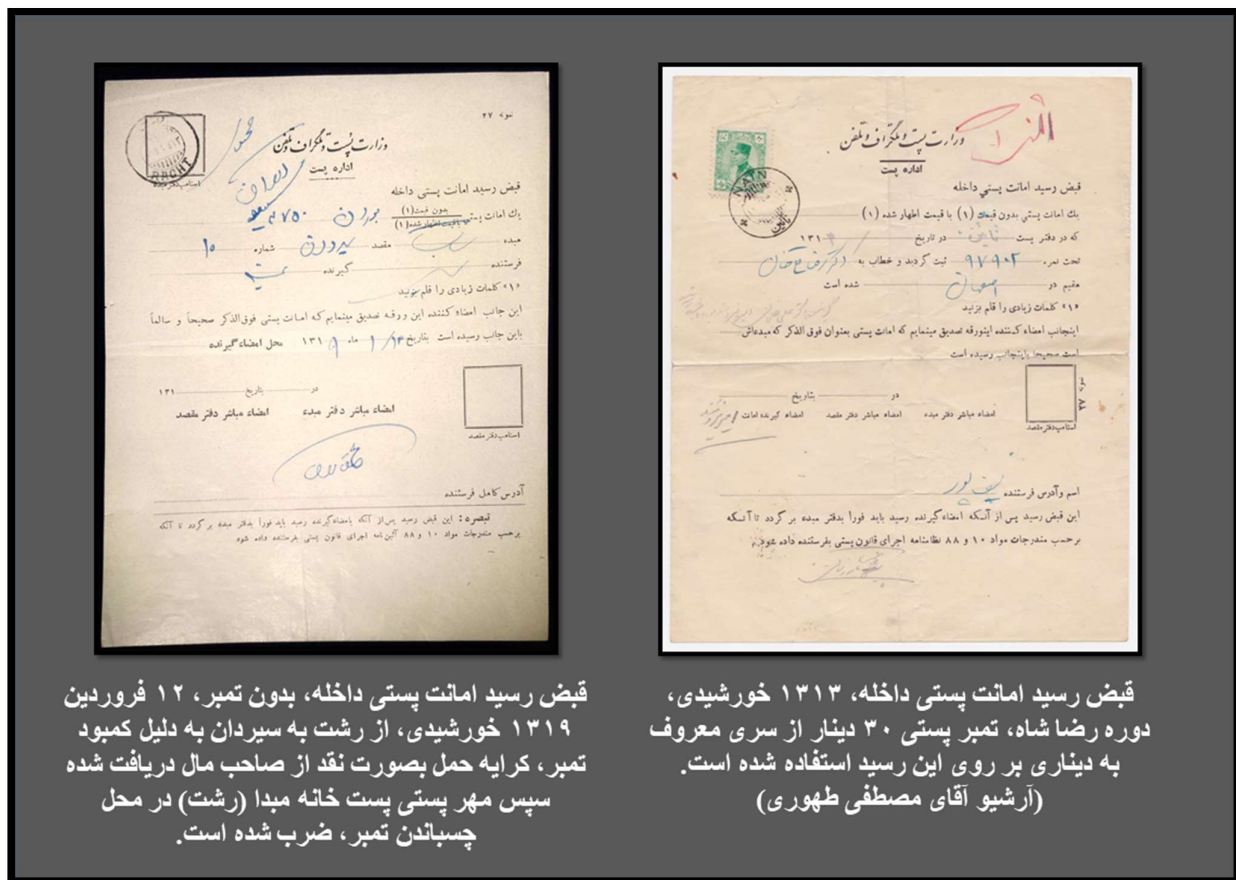 وزارت پست و تلگراف و تلفن
اداره پست
قبض رسید امانت پستی داخله
یك امانت پستی بدون قیمت (۱) با قیمت اظهار شده (۱)
که در دفتر پست نایین در تاریخ ۱۳۱۳
تحت نمره ۹۷۹۰۲ ثبت گردید و خطاب به
مقیم در اصفهان شده است
«۱» کلمات زیادی را قلم بزنید
اینجانب امضاء کننده اینورقه تصدیق مینمایم که امانت پستی بعنوان فوق الذکر که مبدءاش
است صحیحا باینجانب رسیده است
نمونه ۲۷
در بتاریخ
امضاء مباشر دفتر مبدء امضاء مباشر دفتر مقصد امضاء گیرنده امانت
استامپ دفتر مقصد
اسم وآدرس فرستنده
این قبض رسید پس از آنکه امضاء گیرنده رسید باید فورا بدفتر مبدء بر گردد تا آنکه
برحسب مندرجات مواد ۱۰ و ۸۸ نظامنامه اجرای قانون پستی بفرستنده داده شود.
NAYN
نایین
قبض رسید امانت پستی داخله، ۱۳۱۳ خورشیدی،
دوره رضا شاه، تمبر پستی ۳۰ دینار از سری معروف
به دیناری بر روی این رسید استفاده شده است.
(آرشیو آقای مصطفی طهوری)
نمونه ۲۷
وزارت پست و تلگراف و تلفن
اداره پست
RACHT
استامپ دفتر مبدء
قبض رسید امانت پستی داخله
یك امانت پستی بدون قیمت (۱) با قیمت اظهار شده (۱) ۷۵۰
مبدء مقصد شماره ۱۰
فرستنده گیرنده
«۱» کلمات زیادی را قلم بزنید
این جانب امضاء کننده این ورقه تصدیق مینمایم که امانت پستی فوق الذکر صحیحاً و سالماً
باین جانب رسیده است بتاریخ ماه ۱۳۱۹ محل امضاء گیرنده
در بتاریخ ۱۳۱
امضاء مباشر دفتر مبدء امضاء مباشر دفتر مقصد
استامپ دفتر مقصد
آدرس کامل فرستنده
تبصره: این قبض رسید پس از آنکه بامضاء گیرنده رسید باید فورا بدفتر مبدء بر گردد تا آنکه
برحسب مندرجات مواد ۱۰ و ۸۸ آئین نامه اجرای قانون پستی بفرستنده داده شود.
قبض رسید امانت پستی داخله، بدون تمبر، ۱۲ فروردین
۱۳۱۹ خورشیدی، از رشت به سیردان به دلیل کمبود
تمبر، کرایه حمل بصورت نقد از صاحب مال دریافت شده
سپس مهر پستی پست خانه مبدا (رشت) در محل
چسباندن تمبر، ضرب شده است.